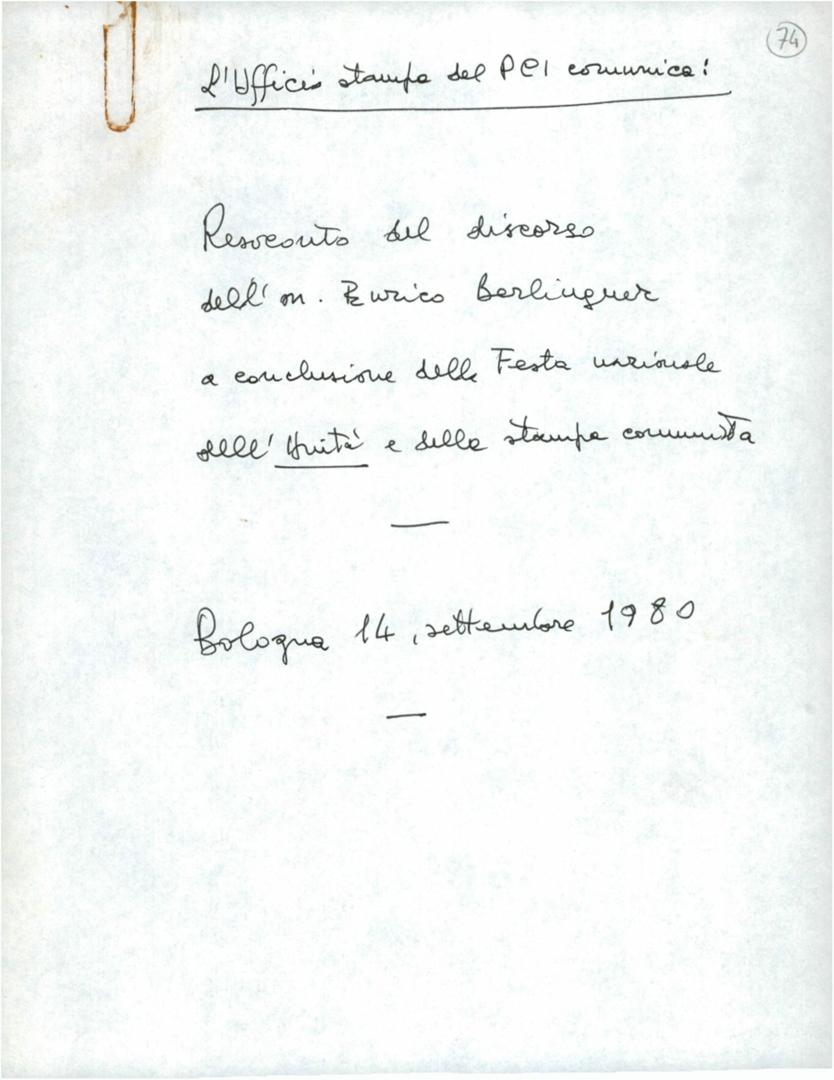 74
L'Ufficio stampa del PCI comunica:
Resoconto del discorso
dell'on. Enrico Berlinguer
a conclusione della Festa nazionale
dell'Unità e della stampa comunista
Bologna 14, settembre 1980